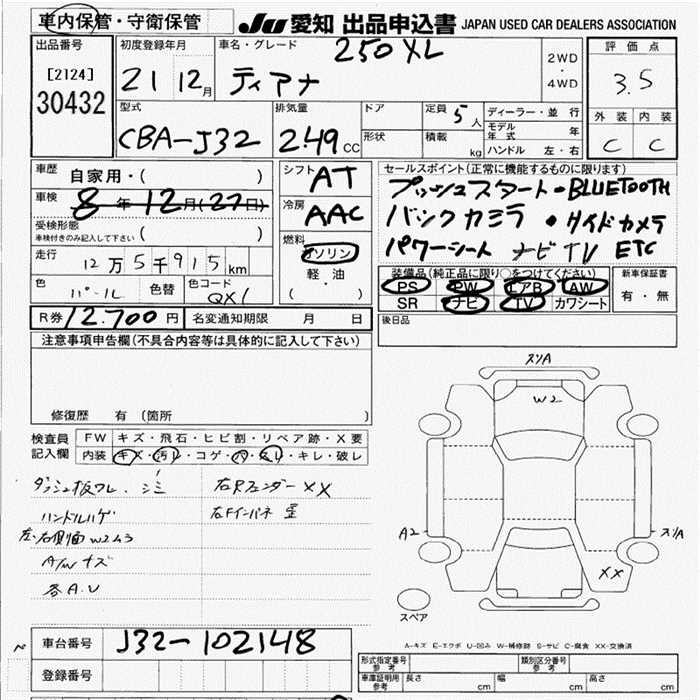 車内保管・守衛保管
JU 愛知 出品申込書 JAPAN USED CAR DEALERS ASSOCIATION
出品番号
[2124]
30432
初度登録年月
21 12月
車名・グレード
250XL
ティアナ
2WD
・
4WD
評価点
3.5
外装 内装
C C
型式
CBA-J32
排気量
2.49 CC
ドア
形状
定員 5人
積載 kg
ディーラー・並行
モデル年式 年
ハンドル 左・右
車歴 自家用・( )
車検 8年12月(27日)
受検形態
車検付きのみ記入して下さい ( )
走行 12万5千915km
色 パール 色替 色コード QX1
シフト AT
冷房 AAC
燃料 ガソリン
軽油
( ・ )
セールスポイント(正常に機能するものに限ります)
プッシュスタート・BLUETOOTH
バックカメラ ・サイドカメラ
パワーシート ナビTV ETC
装備品(純正品に限り○をつけてください)
PS PW エアB AW
SR ナビ TV カワシート
新車保証書
有・無
R券 12.700円 名変通知期限 月 日
後日品
注意事項申告欄(不具合内容等は具体的に記入して下さい)
修復歴 有(箇所 )
検査員記入欄
FW キズ・飛石・ヒビ割・リペア跡・X要
内装 キズ・汚レ・コゲ・穴・スレ・キレ・破レ
ダッシュ板ワレ、シミ
ハンドルハゲ
左、右側面W2 43
A/Wキズ
各A.U
右Rフェンダー XX
右Fインパネ
スリA
W2
A2
スリA
XX
スペア
A-キズ E-エクボ U-凹み W-補修跡 S-サビ C-腐食 XX-交換済
車台番号 J32-102148
登録番号
形式指定番号 参考
類別区分番号 参考
車庫証明用 参考 長さ cm 幅 cm 高さ cm